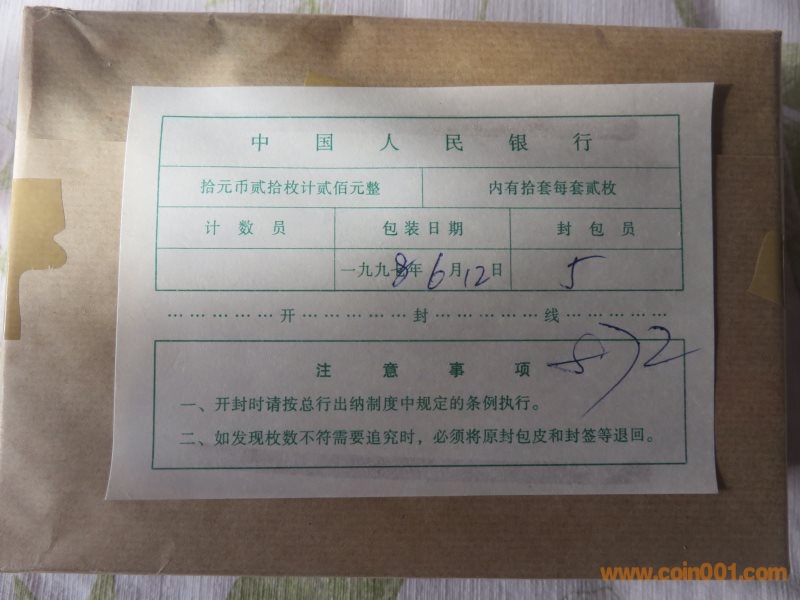 中国人民银行
拾元币贰拾枚计贰佰元整 内有拾套每套贰枚
计数员 包装日期 封包员
一九九8年6月12日 5
……………开……………封……………线……………
注意事项
8 72
一、开封时请按总行出纳制度中规定的条例执行。
二、如发现枚数不符需要追究时,必须将原封包皮和封签等退回。
www.coin001.com